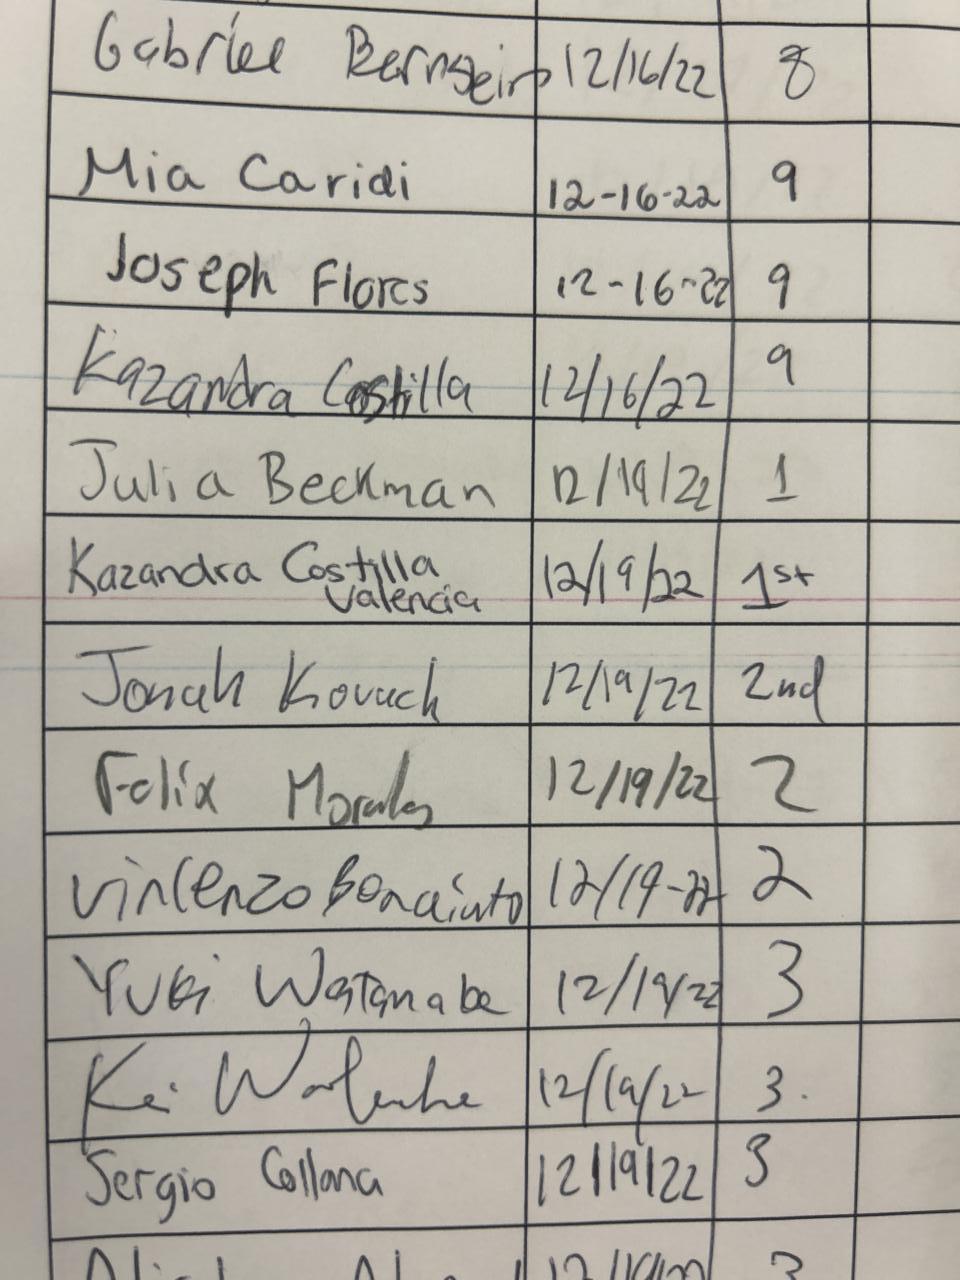 Gabriel Bernstein 12/16/22 8
Mia Caridi 12-16-22 9
Joseph Flores 12-16-22 9
Kazandra Costilla 12/16/22 9
Julia Beckman 12/19/22 1
Kazandra Costilla 12/19/22 1st
Valencia
Jonah Kovach 12/19/22 2nd
Felix Morales 12/19/22 2
Vincenzo 12/19-22 2
Yuki Watanabe 12/19/22 3
Kei 12/19/22 3.
Sergio Collana 12/19/22 3